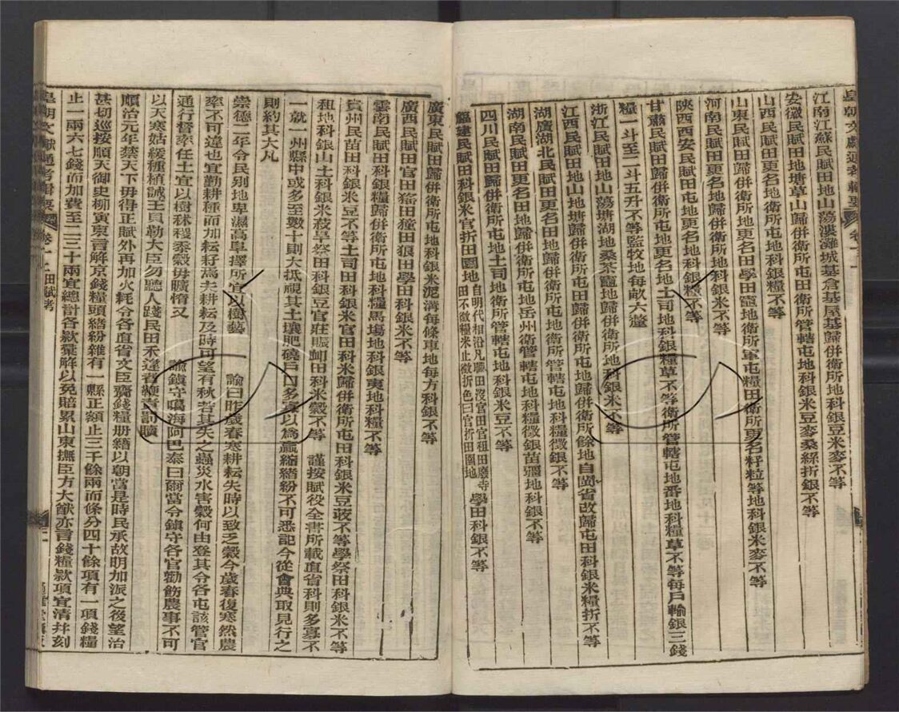 皇朝文獻通考輯要 卷十二
江南江蘇民賦田地山蕩漊灘城基倉基屋基歸併衛所屯地科銀豆米麥不等
安徽民賦田地塘草山歸併衛所屯田衛所管轄屯地科銀米豆麥桑絲折銀不等
山西民賦田更名地歸併衛所屯地科銀糧不等
山東民賦田更名田歸併衛所更名田學田竈地衛所軍屯糧田衛所更名籽粒等地科銀米麥不等
河南民賦田更名地歸併衛所地科銀米不等
陝西西安民賦田更名地歸併衛所屯地更名地科銀糧不等
甘肅民賦田更名地歸併衛所屯地更名地土司地科銀糧草不等衛所管轄屯地番地科糧草不等每戶輸銀三錢
糧一斗至二斗五升不等監牧地每畝六釐
浙江民賦田地山蕩塘湖地桑茶竈地歸併衛所地科銀米不等
江西民賦田地山地塘地歸併衛所屯地歸併衛所餘地自閩省改歸屯田科銀米糧折不等
湖廣湖北民賦田更名田地歸併衛所屯地衛所管轄屯地科糧徵銀不等
湖南民賦田更名田地歸併衛所屯地岳州衛管轄屯地科糧徵銀苗疆地科銀不等
四川民賦田歸併衛所屯地土司地衛所管轄屯地科銀米豆不等
福建民賦田科銀米官折田園地田不徵糧米止徵折色曰官折田園地學田科銀不等
廣東民賦田歸併衛所屯地科銀米泥溝每條車地每方科銀不等
廣西民賦田官田猺田獞田狼田學田科銀米不等
雲南民賦田科銀糧歸併衛所屯地科糧馬場地科銀夷地科糧不等
貴州民苗田科銀米豆不等土司田科銀米官田科銀米歸併衛所屯田科銀米豆不等學祭田科銀米不等
租地科銀山土科銀米旱田科銀豆官莊賑田科米穀不等 謹按賦役全書所載直省科則多寡不
一就一州縣中或多至數十則大抵視其土壤肥磽戶口多寡以為盈縮紛不可悉記今從會典取見行之
則約其大凡
崇德二年令民別地卑濕高阜擇所宜以樹藝 諭曰昨歲春寒耕耘失時以致乏穀今歲春復寒然農
率不可違也宜勤耕種而加耘耔焉夫耕耘及時可望有秋若其失之蟲災水害穀何由登其令各屯該管官
通行督率任土宜以樹秫稷黍穀毋曠惰又 諭鎮守噶海阿巴泰曰爾當令鎮守各官勸飭農事不可
以天寒姑緩種植誡王貝勒大臣勿聽人踐民田禾違者癥責罰贖
順治元年禁天下毋得正賦外再加火耗令各直省文臣齎錢糧冊籍以朝當是時民承故明加派之後望治
甚切巡按順天御史柳寅東言解京錢糧頭緒紛雜有一縣正額止三千餘兩而條分四十餘項有一項錢糧
止一兩六七錢而加費至二三十兩宜總計各款彙解以免賠累山東撫臣方大猷亦言錢糧款項宜清幷刻
皇朝文獻通考輯要 卷十二田賦考